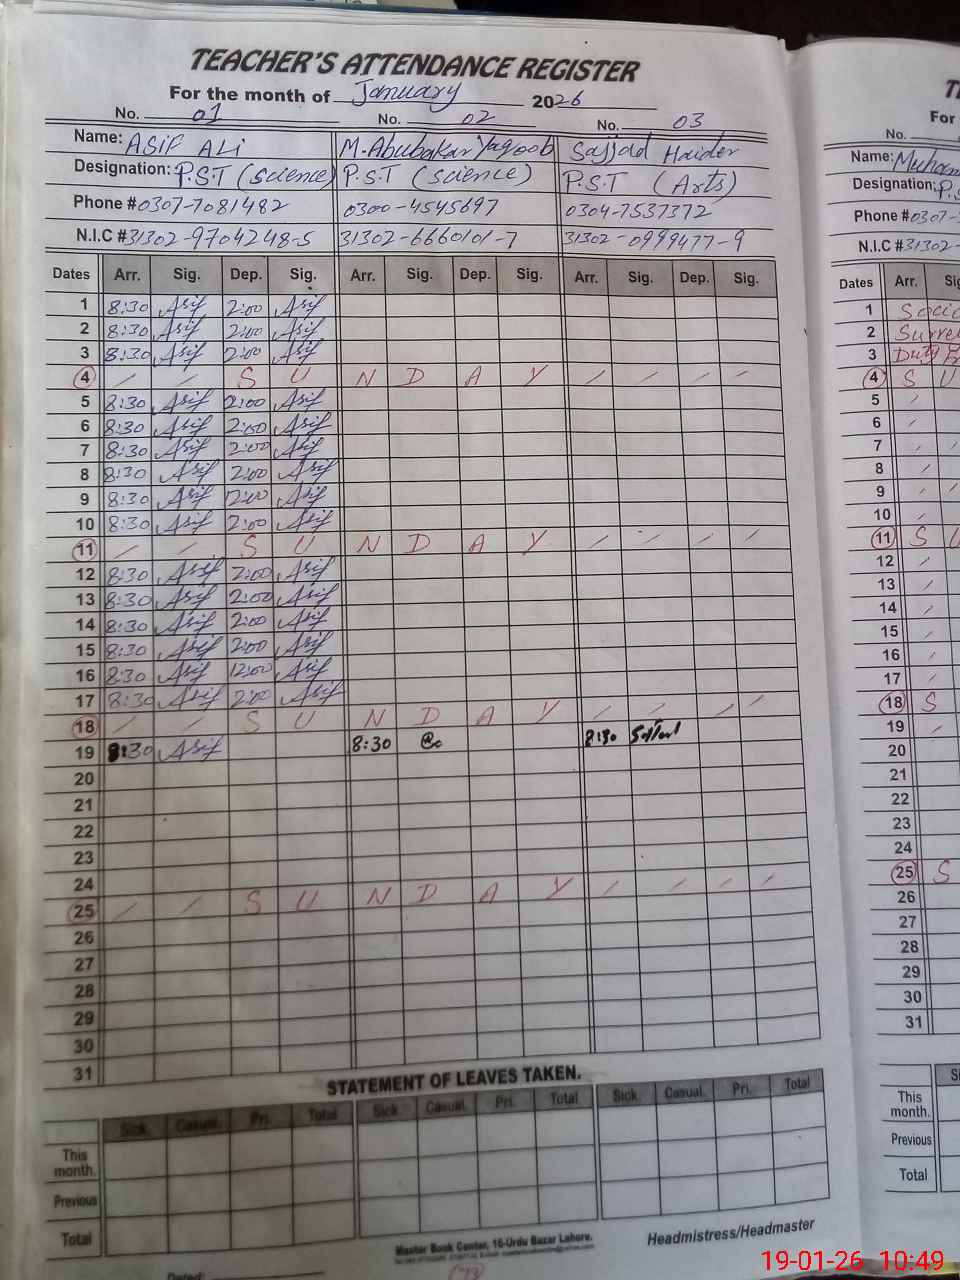 TEACHER'S ATTENDANCE REGISTER
For the month of January 2026
No. 01 No. 02 No. 03
Name: ASIF ALI M.Abubakar Yaqoob Sajjad Haider
Designation: P.S.T (Science) P.S.T (Science) P.S.T (Arts)
Phone # 0307-7081482 0300-4545697 0304-7537372
N.I.C # 31302-9704248-5 31302-6660101-7 31302-0999477-9
Dates Arr. Sig. Dep. Sig. Arr. Sig. Dep. Sig. Arr. Sig. Dep. Sig.
1 8:30 Asif 2:00 Asif
2 8:30 Asif 2:00 Asif
3 8:30 Asif 2:00 Asif
4 / / S U N D A Y / / / /
5 8:30 Asif 2:00 Asif
6 8:30 Asif 2:00 Asif
7 8:30 Asif 2:00 Asif
8 8:30 Asif 2:00 Asif
9 8:30 Asif 2:00 Asif
10 8:30 Asif 2:00 Asif
11 / / S U N D A Y / / / /
12 8:30 Asif 2:00 Asif
13 8:30 Asif 2:00 Asif
14 8:30 Asif 2:00 Asif
15 8:30 Asif 2:00 Asif
16 8:30 Asif 12:00 Asif
17 8:30 Asif 2:00 Asif
18 / / S U N D A Y / / / /
19 8:30 Asif 8:30 8:30
20
21
22
23
24
25 / / S U N D A Y / / / /
26
27
28
29
30
31
STATEMENT OF LEAVES TAKEN.
Sick. Casual. Pri. Total Sick. Casual. Pri. Total Sick. Casual. Pri. Total
This month.
Previous
Total
Master Book Center, 16-Urdu Bazar Lahore.
Headmistress/Headmaster
Dated:
For
No.
Name: Muham
Designation: P.S
Phone # 0307-
N.I.C # 31302-
Dates Arr. Sig
1 Socio
2 Surve
3 Duty
4 S U
5 /
6 /
7 / /
8 /
9 / /
10 /
11 S U
12 /
13 /
14 /
15 /
16 /
17 /
18 S
19 /
20
21
22
23
24
25 S
26
27
28
29
30
31
This month.
Previous
Total
19-01-26 10:49